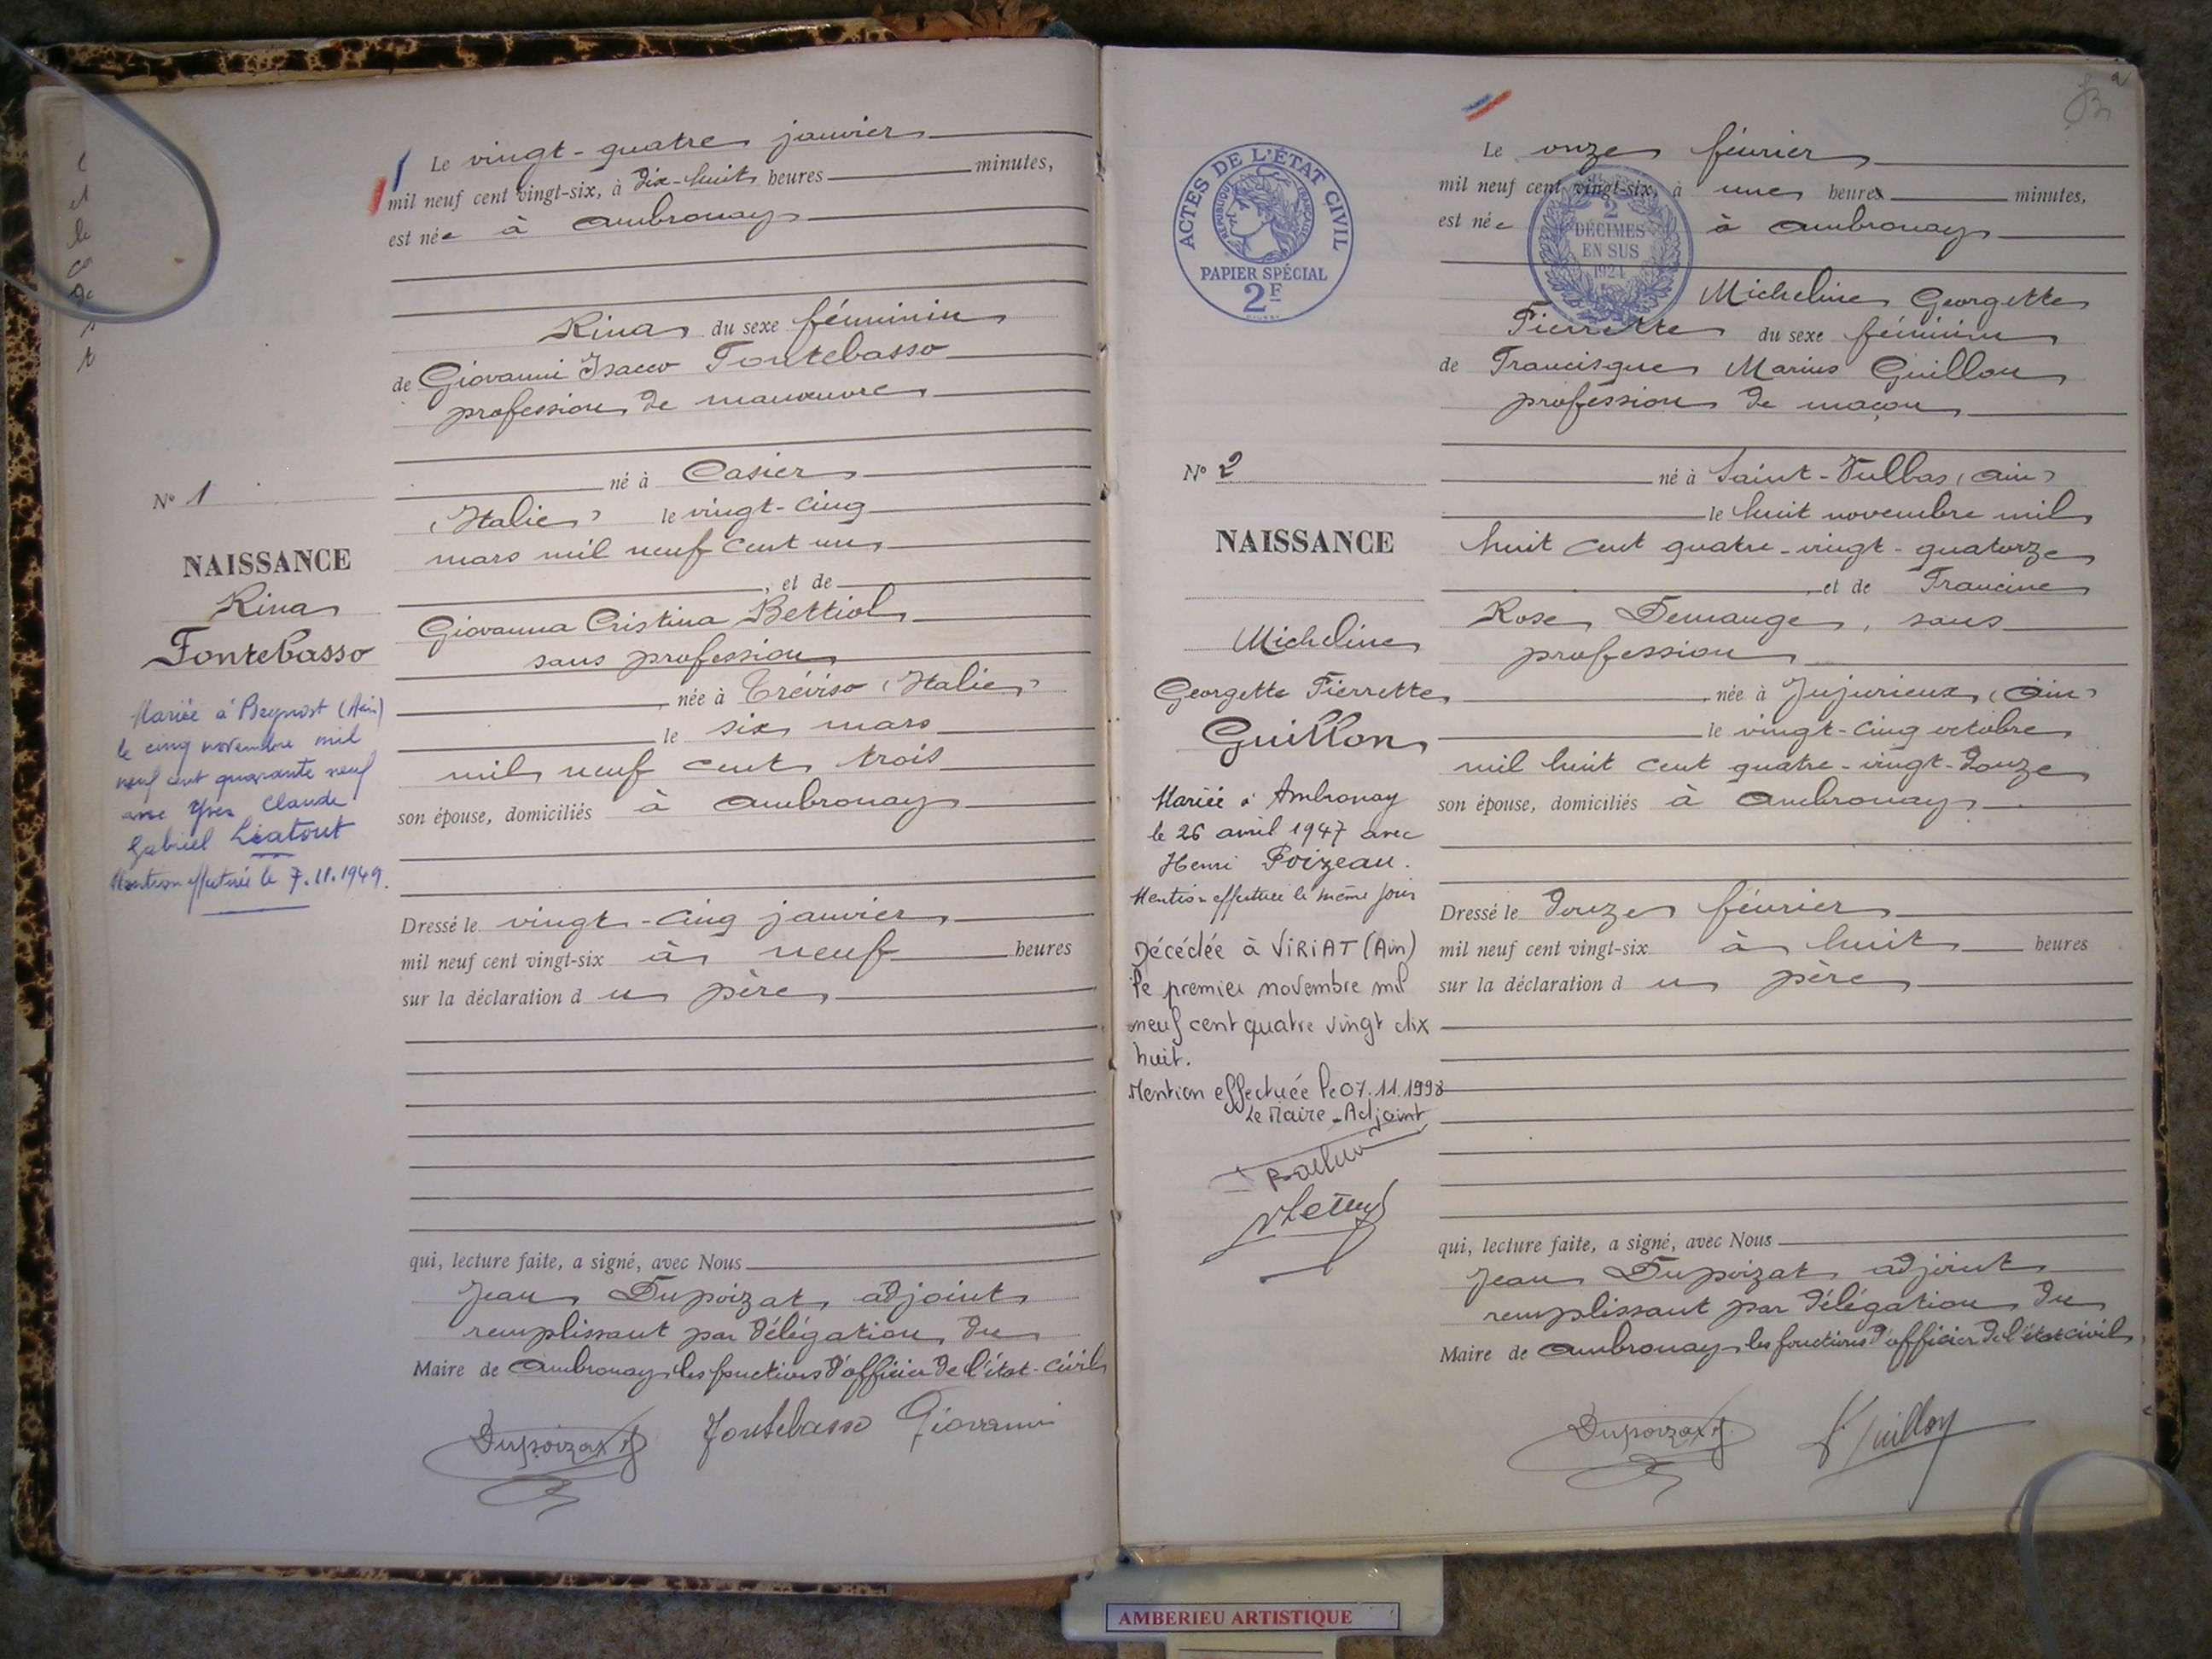 Le vingt-quatre janvier
mil neuf cent vingt-six, à dix-huit heures minutes,
est née à Ambronay
Rina du sexe féminin
de Giovanni Isacco Fontebasso
profession de manœuvre
né à Casier
(Italie) le vingt-cinq
mars mil neuf cent un
, et de
Giovanna Cristina Bettiol
sans profession
, née à Tréviso (Italie)
le six mars
mil neuf cent trois
son épouse, domiciliés à Ambronay
Dressé le vingt-cinq janvier
mil neuf cent vingt-six à neuf heures
sur la déclaration du père
qui, lecture faite, a signé, avec Nous
Jean Dupoizat, adjoint
remplissant par délégation du
Maire de Ambronay les fonctions d'officier de l'état-civil
Dupoizat Fontebasso Giovanni
N° 1
NAISSANCE
Rina
Fontebasso
Mariée à Beynost (Ain)
le cinq novembre mil
neuf cent quarante neuf
avec Yves Claude
Gabriel Liatout
Mention effectuée le 7.11.1949.
ACTES DE L'ÉTAT CIVIL
RÉPUBLIQUE FRANÇAISE
PAPIER SPÉCIAL
2F
N° 2
NAISSANCE
Micheline
Georgette Pierrette
Guillon
Mariée à Ambronay
le 26 avril 1947 avec
Henri Poizeau.
Mention effectuée le même jour
Décédée à VIRIAT (Ain)
le premier novembre mil
neuf cent quatre vingt dix
huit.
Mention effectuée le 07.11.1998
Le Maire-Adjoint
2
Le onze février
mil neuf cent vingt-six, à une heure minutes,
est née à Ambronay
2
DÉCIMES
EN SUS
1921
Micheline Georgette
Pierrette du sexe féminin
de Francisque Marius Guillon
profession de maçon
né à Saint-Vulbas (Ain)
le huit novembre mil
huit cent quatre-vingt-quatorze
, et de Francine
Rose Demange, sans
profession
, née à Jujurieux (Ain)
le vingt-cinq octobre
mil huit cent quatre-vingt-douze
son épouse, domiciliés à Ambronay
Dressé le douze février
mil neuf cent vingt-six à huit heures
sur la déclaration du père
qui, lecture faite, a signé, avec Nous
Jean Dupoizat adjoint
remplissant par délégation du
Maire de Ambronay les fonctions d'officier de l'état civil
Dupoizat Guillon
AMBERIEU ARTISTIQUE